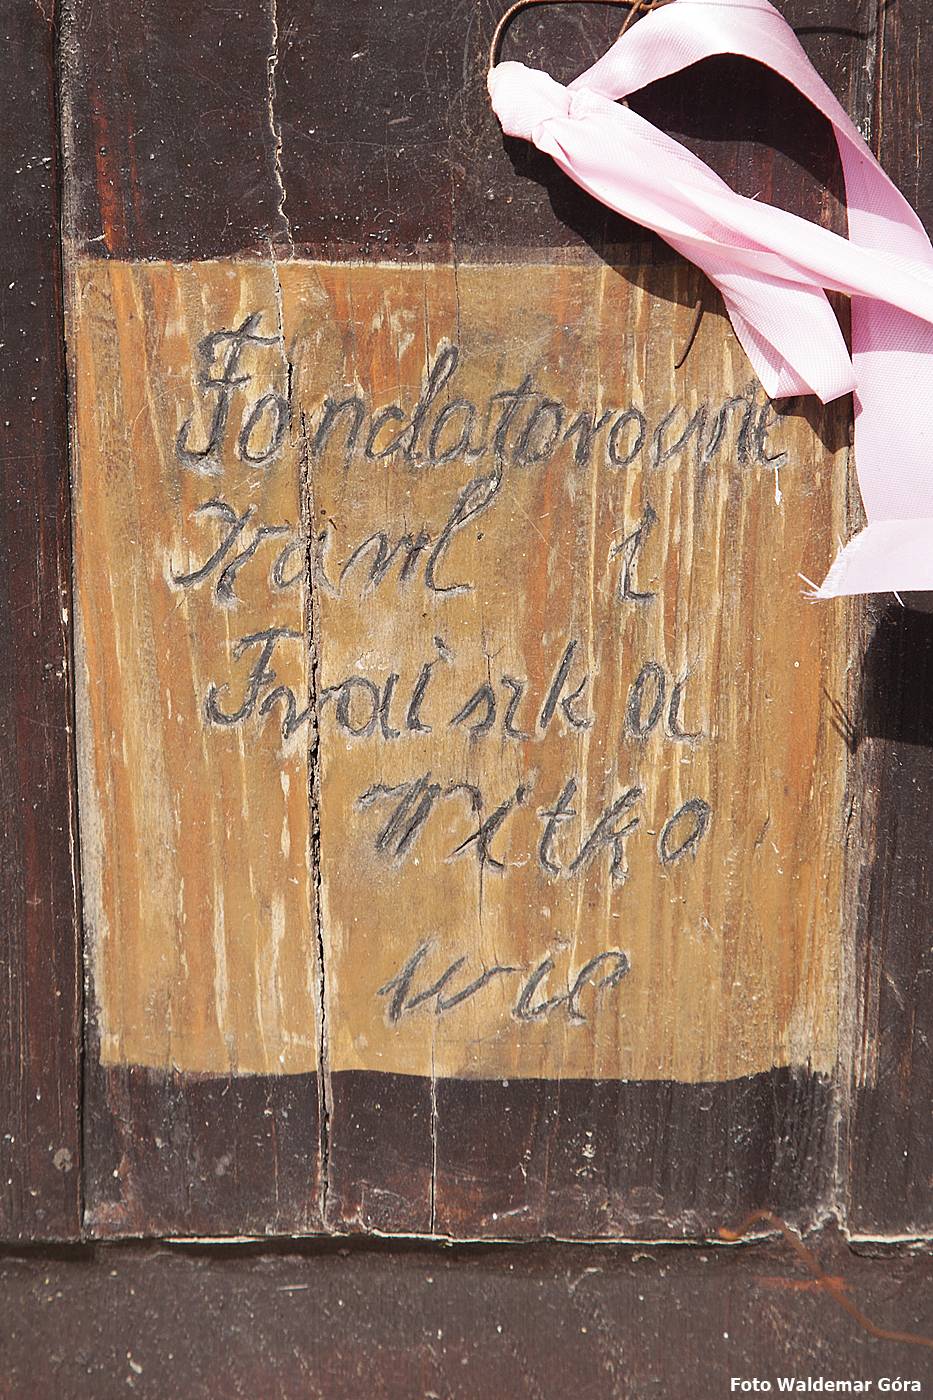 Fondatorowie
Karol i
Fraiszka
Witko
wie
Foto Waldemar Góra